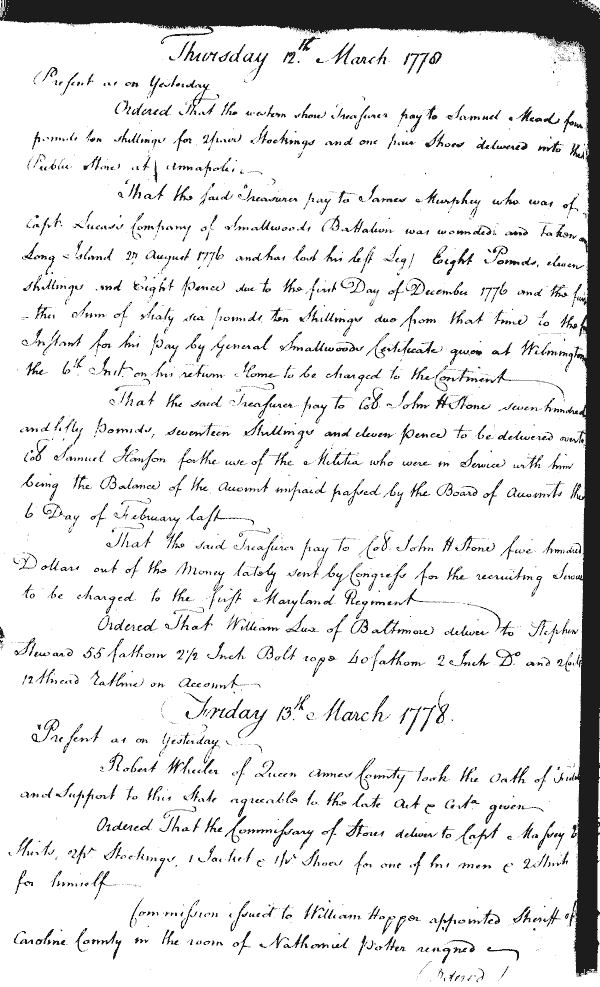 Thursday 12.th March 1778
Present as on Yesterday
Ordered That the western shore Treasurer pay to Samuel Mead four
pounds ten shillings for 2 pair Stockings and one pair Shoes delivered into the
Public Store at Annapolis
That the said Treasurer pay to James Murphey who was of
Capt. Lucas's Company of Smallwoods Battalion was wounded and taken on
Long Island 27 August 1776 and has lost his left Leg) Eight Pounds, eleven
shillings and Eight pence due to the first Day of December 1776 and the fur
-ther Sum of Sixty six pounds, ten Shillings due from that time to the
Instant for his Pay by General Smallwoods Certificate given at Wilmington
the 6th. Inst. on his return Home to be charged to the Continent
That the said Treasurer pay to Col. John H Stone seven hundred
and fifty Pounds, seventeen Shillings and eleven Pence to be delivered over to
Col Samuel Hanson for the use of the Militia who were in Service with him
being the Balance of the Account unpaid passed by the Board of Accounts the
6 Day of February last
That the said Treasurer pay to Col. John H Stone five hundred
Dollars out of the Money lately sent by Congress for the recruiting Service
to be charged to the first Maryland Regiment
Ordered That William Lux of Baltimore deliver to Stephen
Steward 55 fathom 2 1/2 Inch Bolt rope 40 fathom 2 Inch Do. and 2 Coils
12 thread Ratline on Account
Friday 13.th March 1778.
Present as on Yesterday
Robert Wheeler of Queen Annes County took the Oath of Fidel
and Support to this State agreable to the late Act & Certa. given
Ordered That the Commissary of Stores deliver to Capt Massey
Shirts, 2 pr Stockings, 1 Jacket & 1 pr Shoes for one of his men & 2 Shirts
for himself
Commission issued to William Hopper appointed Sheriff of
Caroline County in the room of Nathaniel Potter resigned
(Ordered)